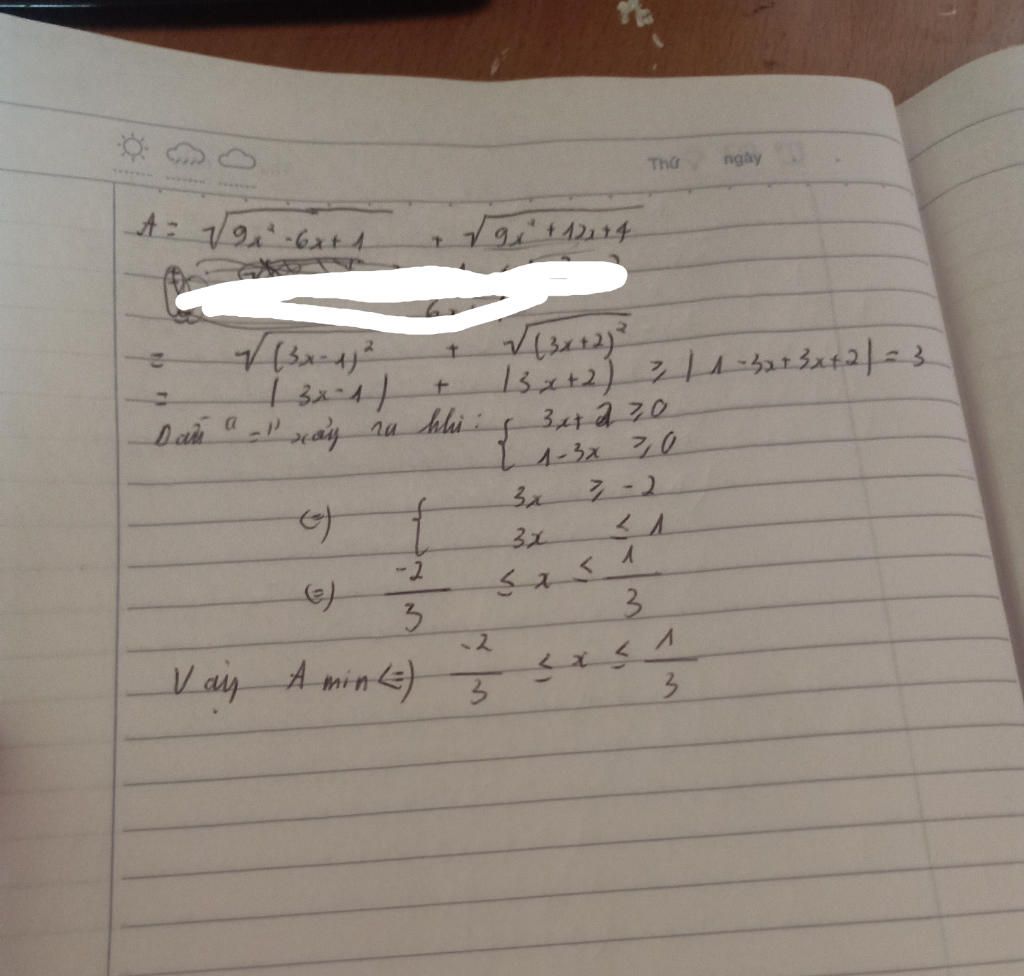 Thứ ngày
A = √(9x² - 6x + 1) + √(9x² + 12x + 4)
= √((3x - 1)²) + √((3x + 2)²)
= |3x - 1| + |3x + 2| ≥ |1 - 3x + 3x + 2| = 3
Dấu "=" xảy ra khi: { 3x + 2 ≥ 0
1 - 3x ≥ 0
(=) { 3x ≥ -2
3x ≤ 1
(=) -2/3 ≤ x ≤ 1/3
Vậy A min (=) -2/3 ≤ x ≤ 1/3